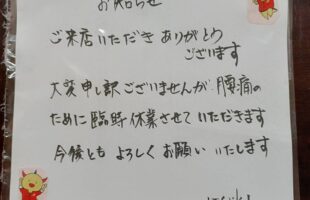 お知らせ
ご来店いただき ありがとう
ございます
大変申し訳ございませんが、腰痛の
ために臨時休業させていただきます
今後とも よろしくお願いいたします